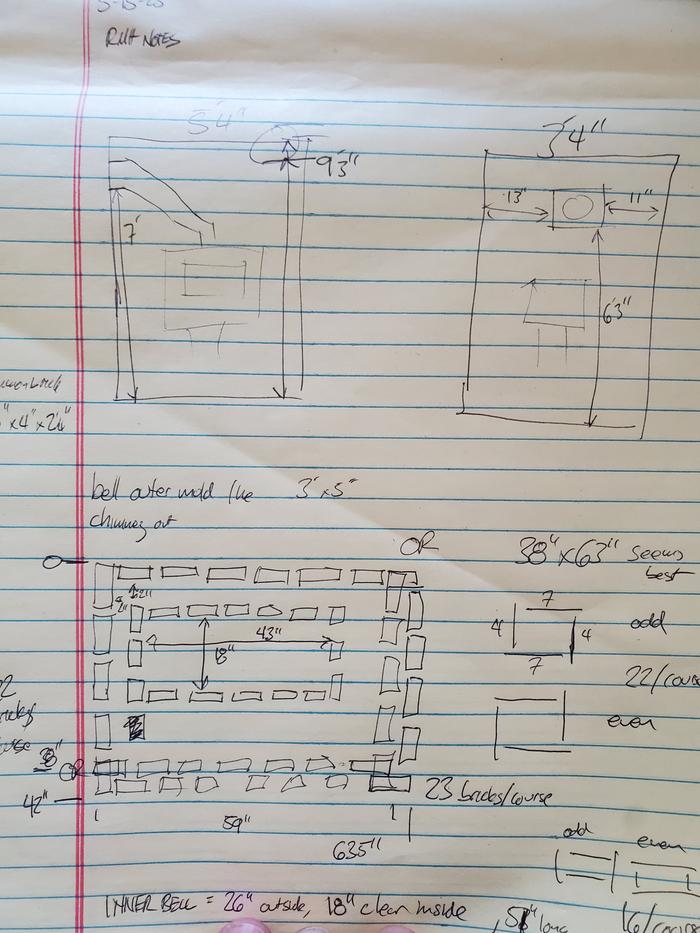 5-15-23
RMH NOTES
5'4"
9'3"
7'
3'4"
13"
11"
6'3"
"x4"x2¼"
bell outer mold like 3'x5'
chimney out
OR
38"x63" seems
best
43"
18"
7
4
4
odd
7
22/course
even
38"
OR
42"
23 bricks/course
59"
63.5"
odd
even
INNER BELL = 26" outside, 18" clean inside
, 51" long
16/course